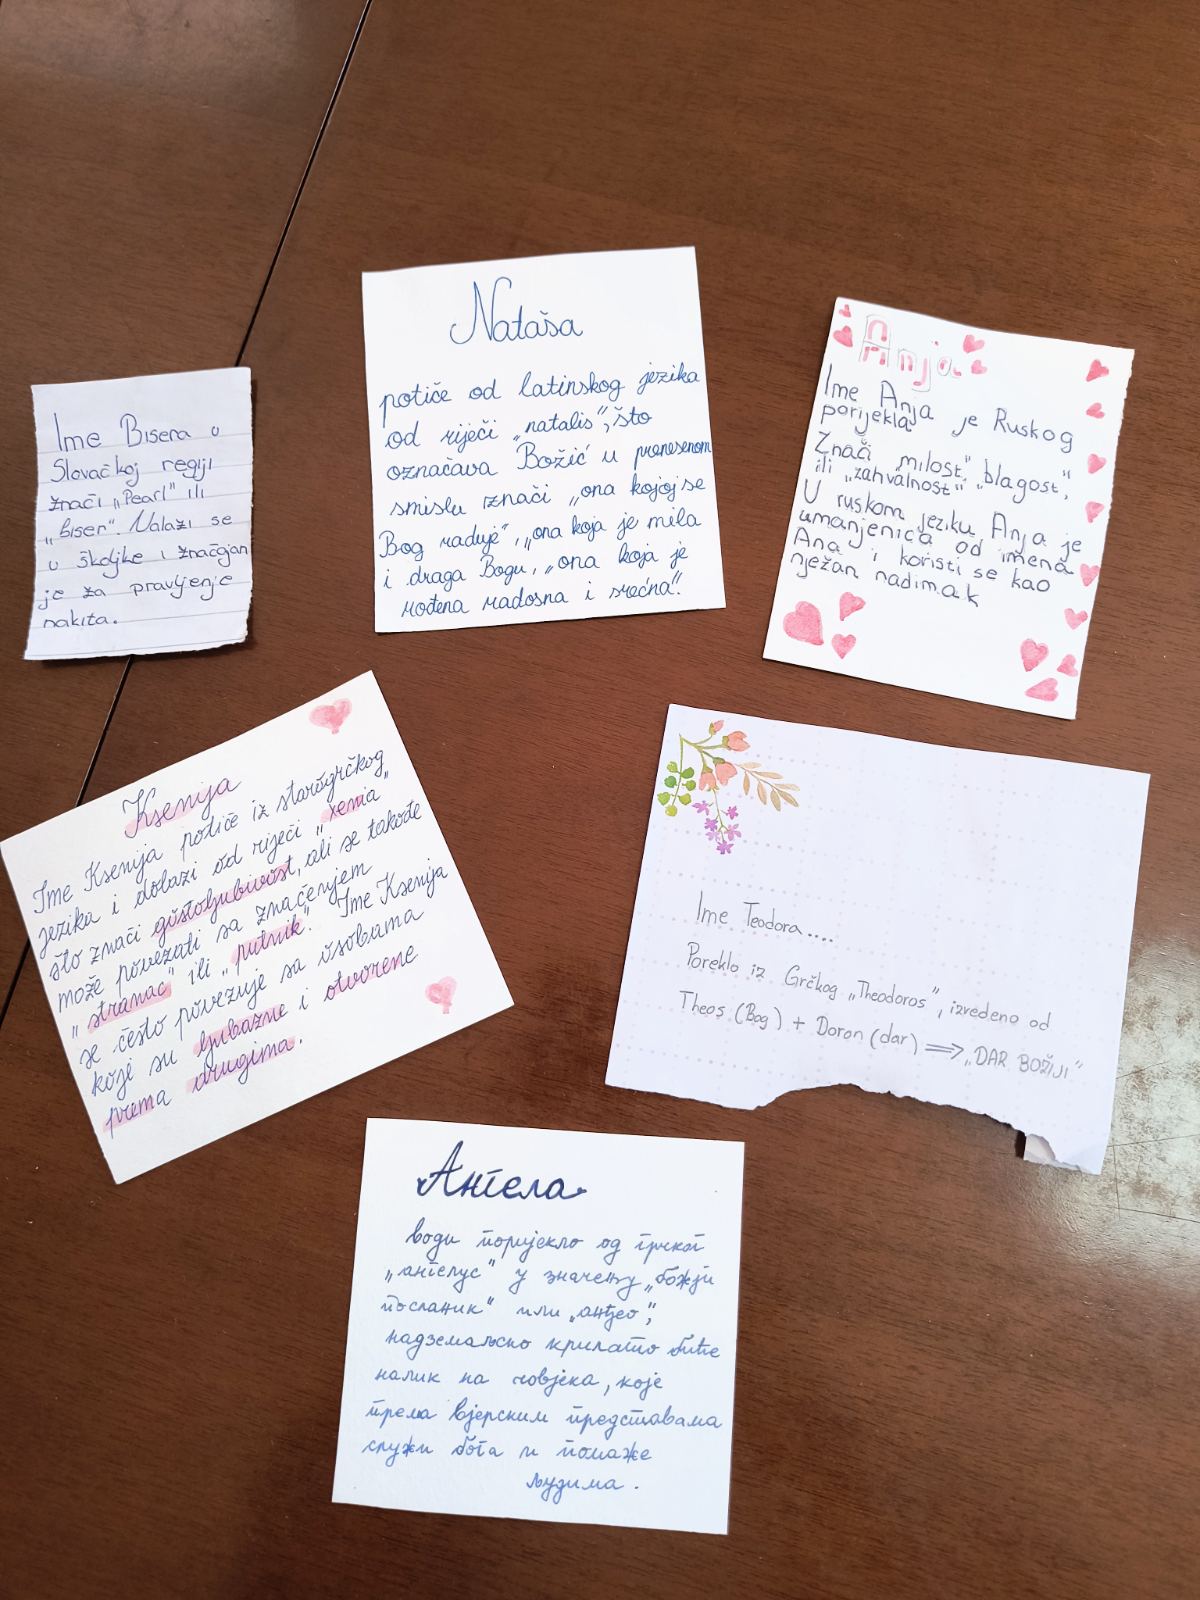 Ime Bisera u
Slovačkoj regiji
znači „Pearl" ili
„biser". Nalazi se
u školjke i značajan
je za pravljenje
nakita.
Nataša
potiče od latinskog jezika
od riječi „natalis", što
označava Božić u prenesenom
smislu znači „ona kojoj se
Bog raduje", „ona koja je mila
i draga Bogu, „ona koja je
rođena radosna i srećna".
Anja
Ime Anja je Ruskog
porijekla
Znači „milost", „blagost",
ili „zahvalnost"
U ruskom jeziku Anja je
umanjenica od imena
Ana i koristi se kao
nježan nadimak
Ksenija
Ime Ksenija potiče iz starogrčkog
jezika i dolazi od riječi „xenia"
što znači gostoljubivost, ali se takođe
može povezati sa značenjem
„stranac" ili „putnik". Ime Ksenija
se često povezuje sa osobama
koje su ljubazne i otvorene
prema drugima.
Ime Teodora....
Poreklo iz Grčkog „Theodoros", izvedeno od
Theos (Bog) + Doron (dar) ⟹ „DAR BOŽIJI"
Ангела
води поријекло од грчког
„ангелус" у значењу „божји
посланик" или „анђео",
надземаљско крилато биће
налик на човјека, које
према вјерским представама
служи бога и помаже
људима.